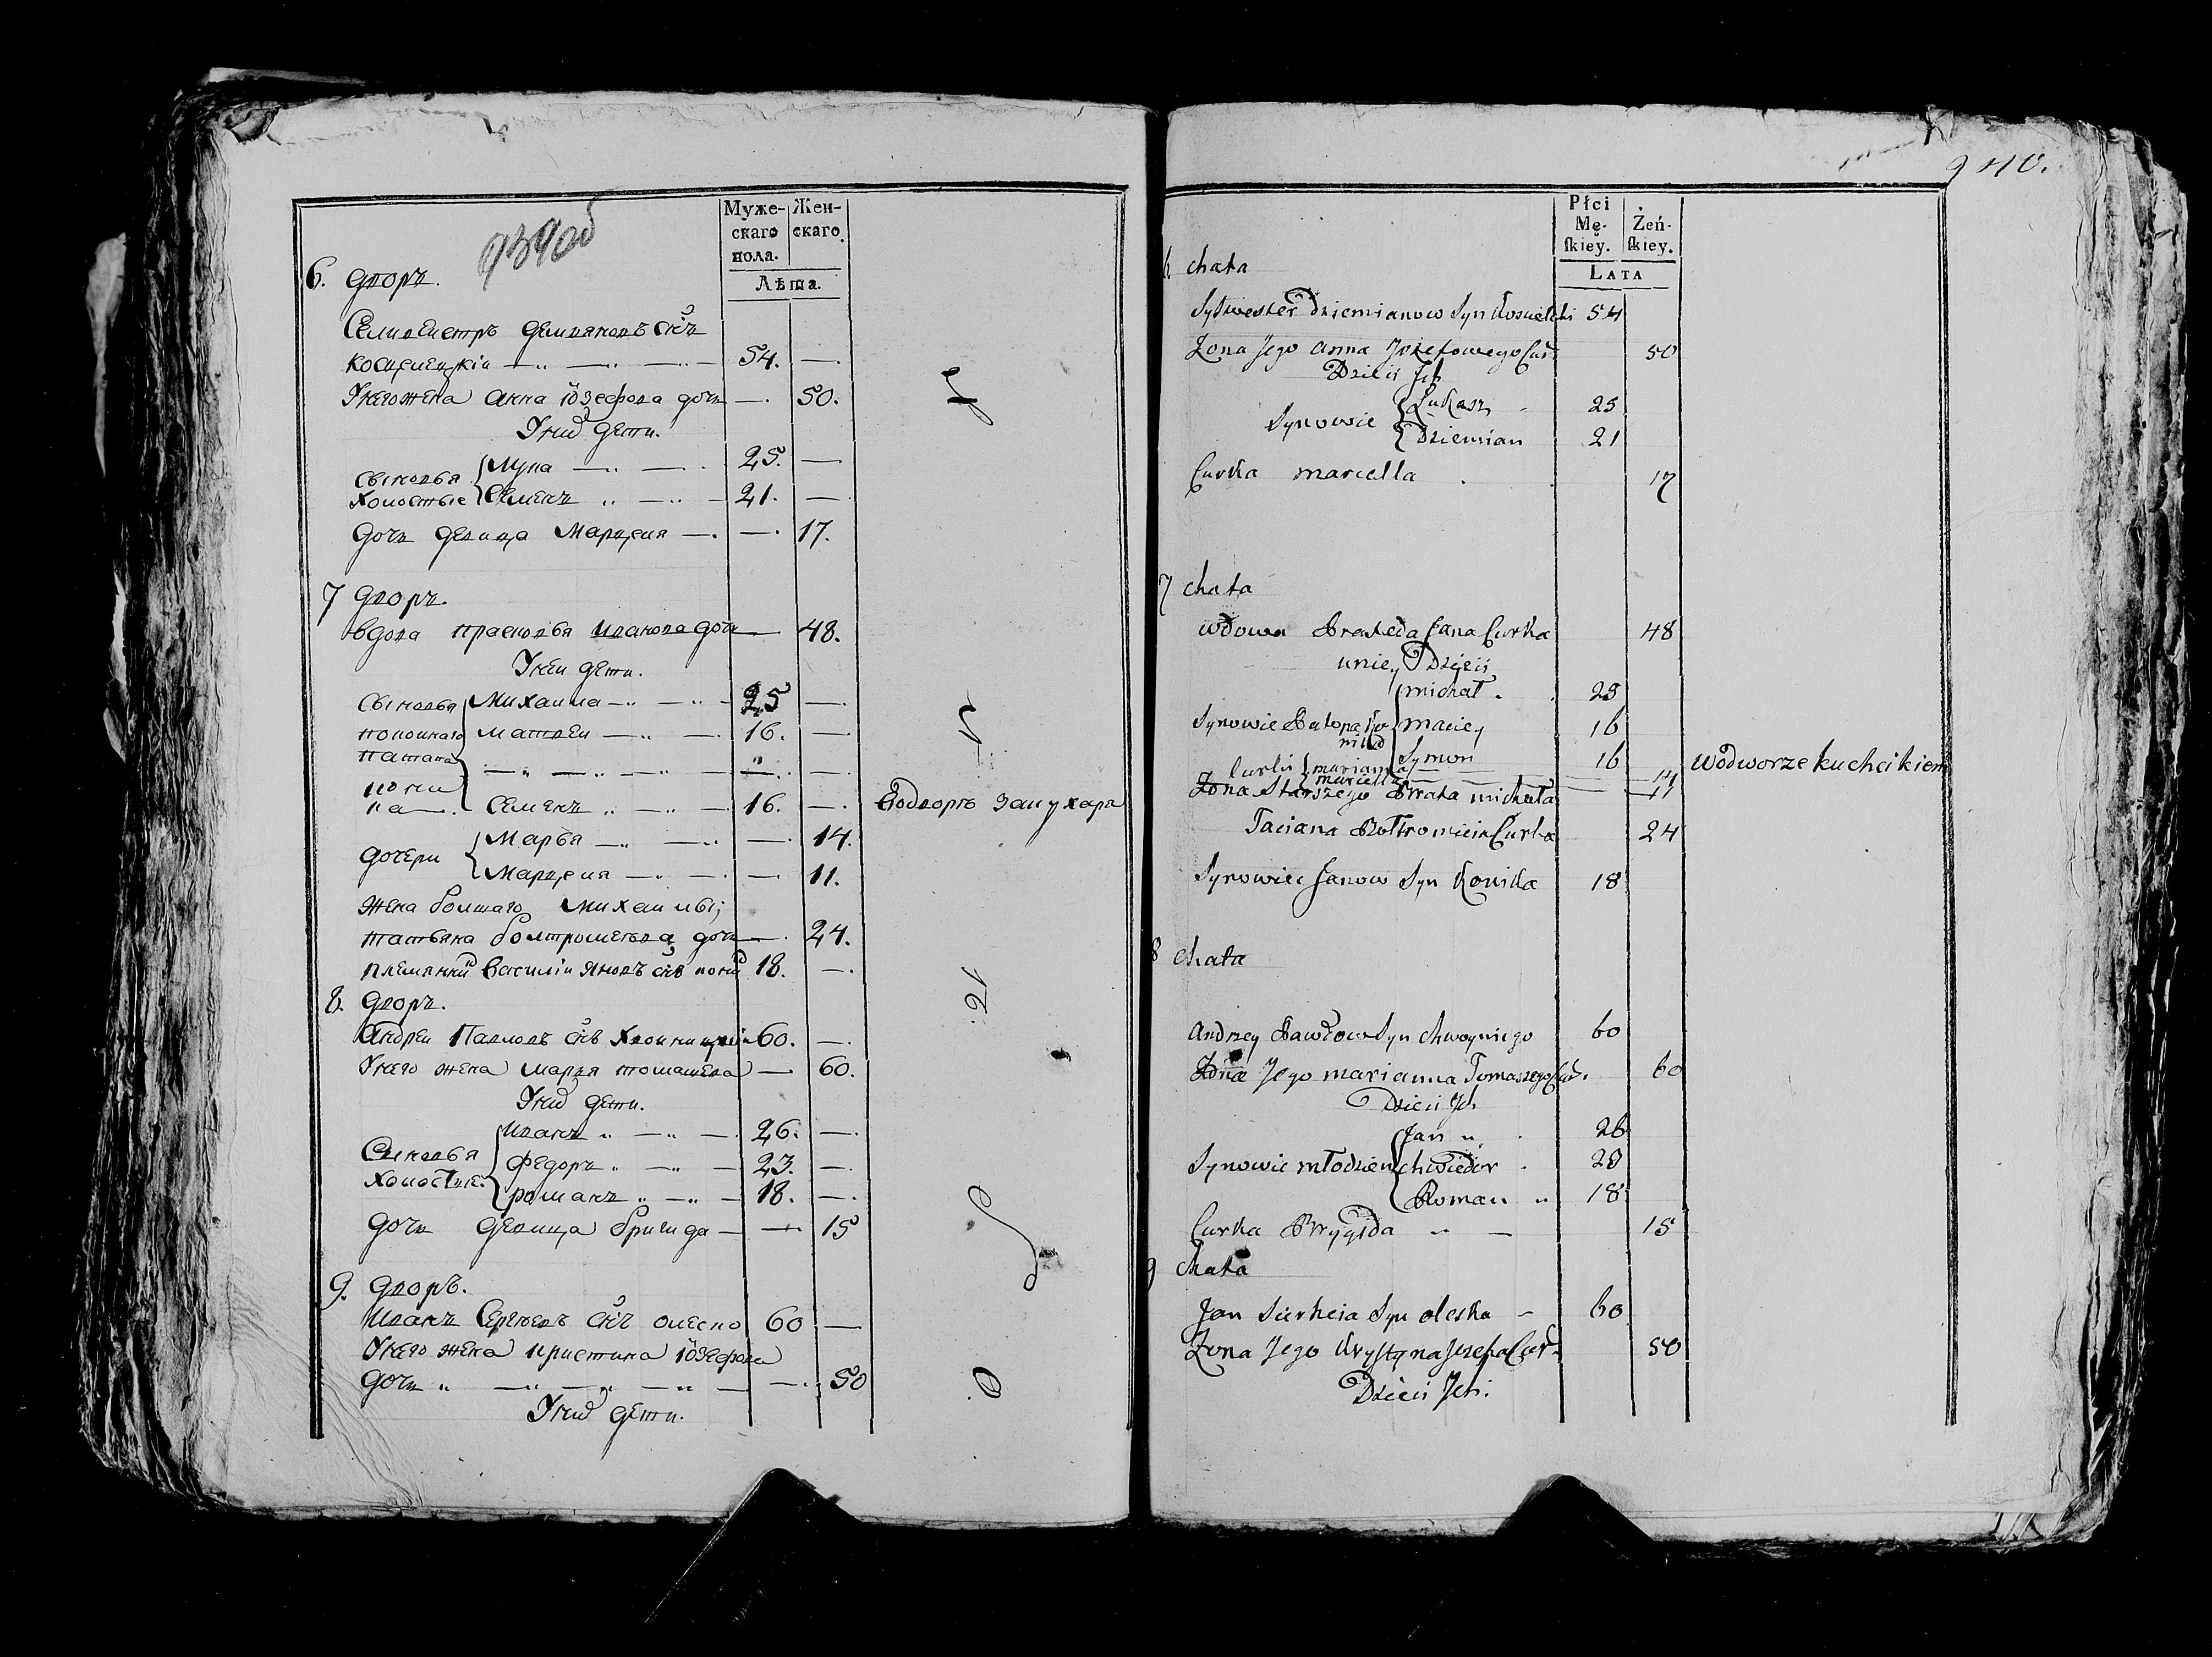 939 об
Муже-
скаго
пола.
Жен-
скаго.
Лѣта.
6. дворъ.
Селивестръ демьяновъ снъ
косцелецкіи 54. —
У него жена Анна iозефова дочь — 50.
У них дети.
сыновья холостые
Лука 25. —
Семенъ 21. —
дочь девица Марцеля — 17.
7 дворъ.
вдова прасковья иванова дочь — 48.
У неи дети.
сыновья
покоинаго
Михаила 25 —
матвеи 16. —
Семенъ 16. — во дворъ за кухара
дочери
Марья — 14.
Марцеля — 11.
жена болшаго михаилы;
татьяна болтромеева дочь — 24.
племянник василіи яновъ снъ 18. —
8. дворъ.
Андреи Павловъ снъ 60. —
У него жена марья томашева — 60.
У них дети.
Сыновья
холостые
иванъ 26. —
федоръ 23. —
романъ 18. —
дочь девица бригида — 15
9. дворъ.
иванъ Сергеевъ снъ олеско 60 —
У него жена кристина iозефова
дочь — 50
У них дети.
21
940.
Płci
Mę-
skiey.
Żeń-
skiey.
LATA
6 chata
Sylwester Dziemianow Syn 54
Zona Jego anna Jozefowego Cur. 50
Dzieci Jch
Synowie
Łukasz 25
Dziemian 21
Curka marcella 17
7 chata
wdowa Prakseda Jana Curka 48
u niey Dzieci
Synowie
michał 25
maciey 16
Symon 16 Wodworze kuchcikiem
Curki
marianna 14
marcella 11
Zona Starszego Brata michała
Taciana Bołtromieia Curka 24
Synowiec Janow Syn 18
8 chata
Andrzey Pawłow Syn 60
Zona Jego marianna Tomaszego Cur. 60
Dzieci Jch
Synowie młodzien
Jan 26
chwiedor 23
Roman 18
Curka Brygida 15
9 chata
Jan Sierheia Syn oleska 60
Zona Jego Krystyna Jozefa Cur. 50
Dzieci Jch.